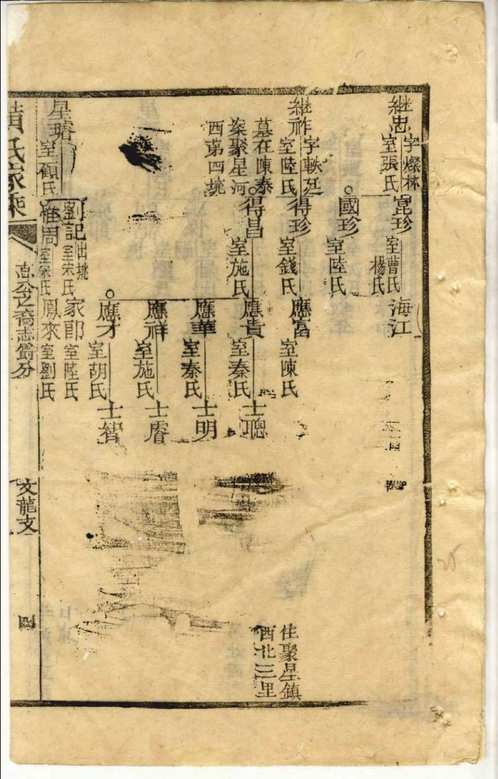 継忠 字燦林 室張氏
崑珍 室曹氏 楊氏
海江
國珍 室陸氏
継祚 字軼廷 室陸氏
墓在陳秦
桒聚星河
西苐四垗
得珍 室錢氏
應富 室陳氏
得昌 室施氏
應貴 室秦氏
士聰
應華 室秦氏
士明
應祥 室施氏
士睿
應才 室胡氏
士智
住聚星鎮
西北三里
星璿 室顧氏
劉記 出垗 室宋氏
家郎 室陸氏
維周 室宋氏
鳳來 室劉氏
黄氏家乘
直公之裔志爵分
文龍支
四